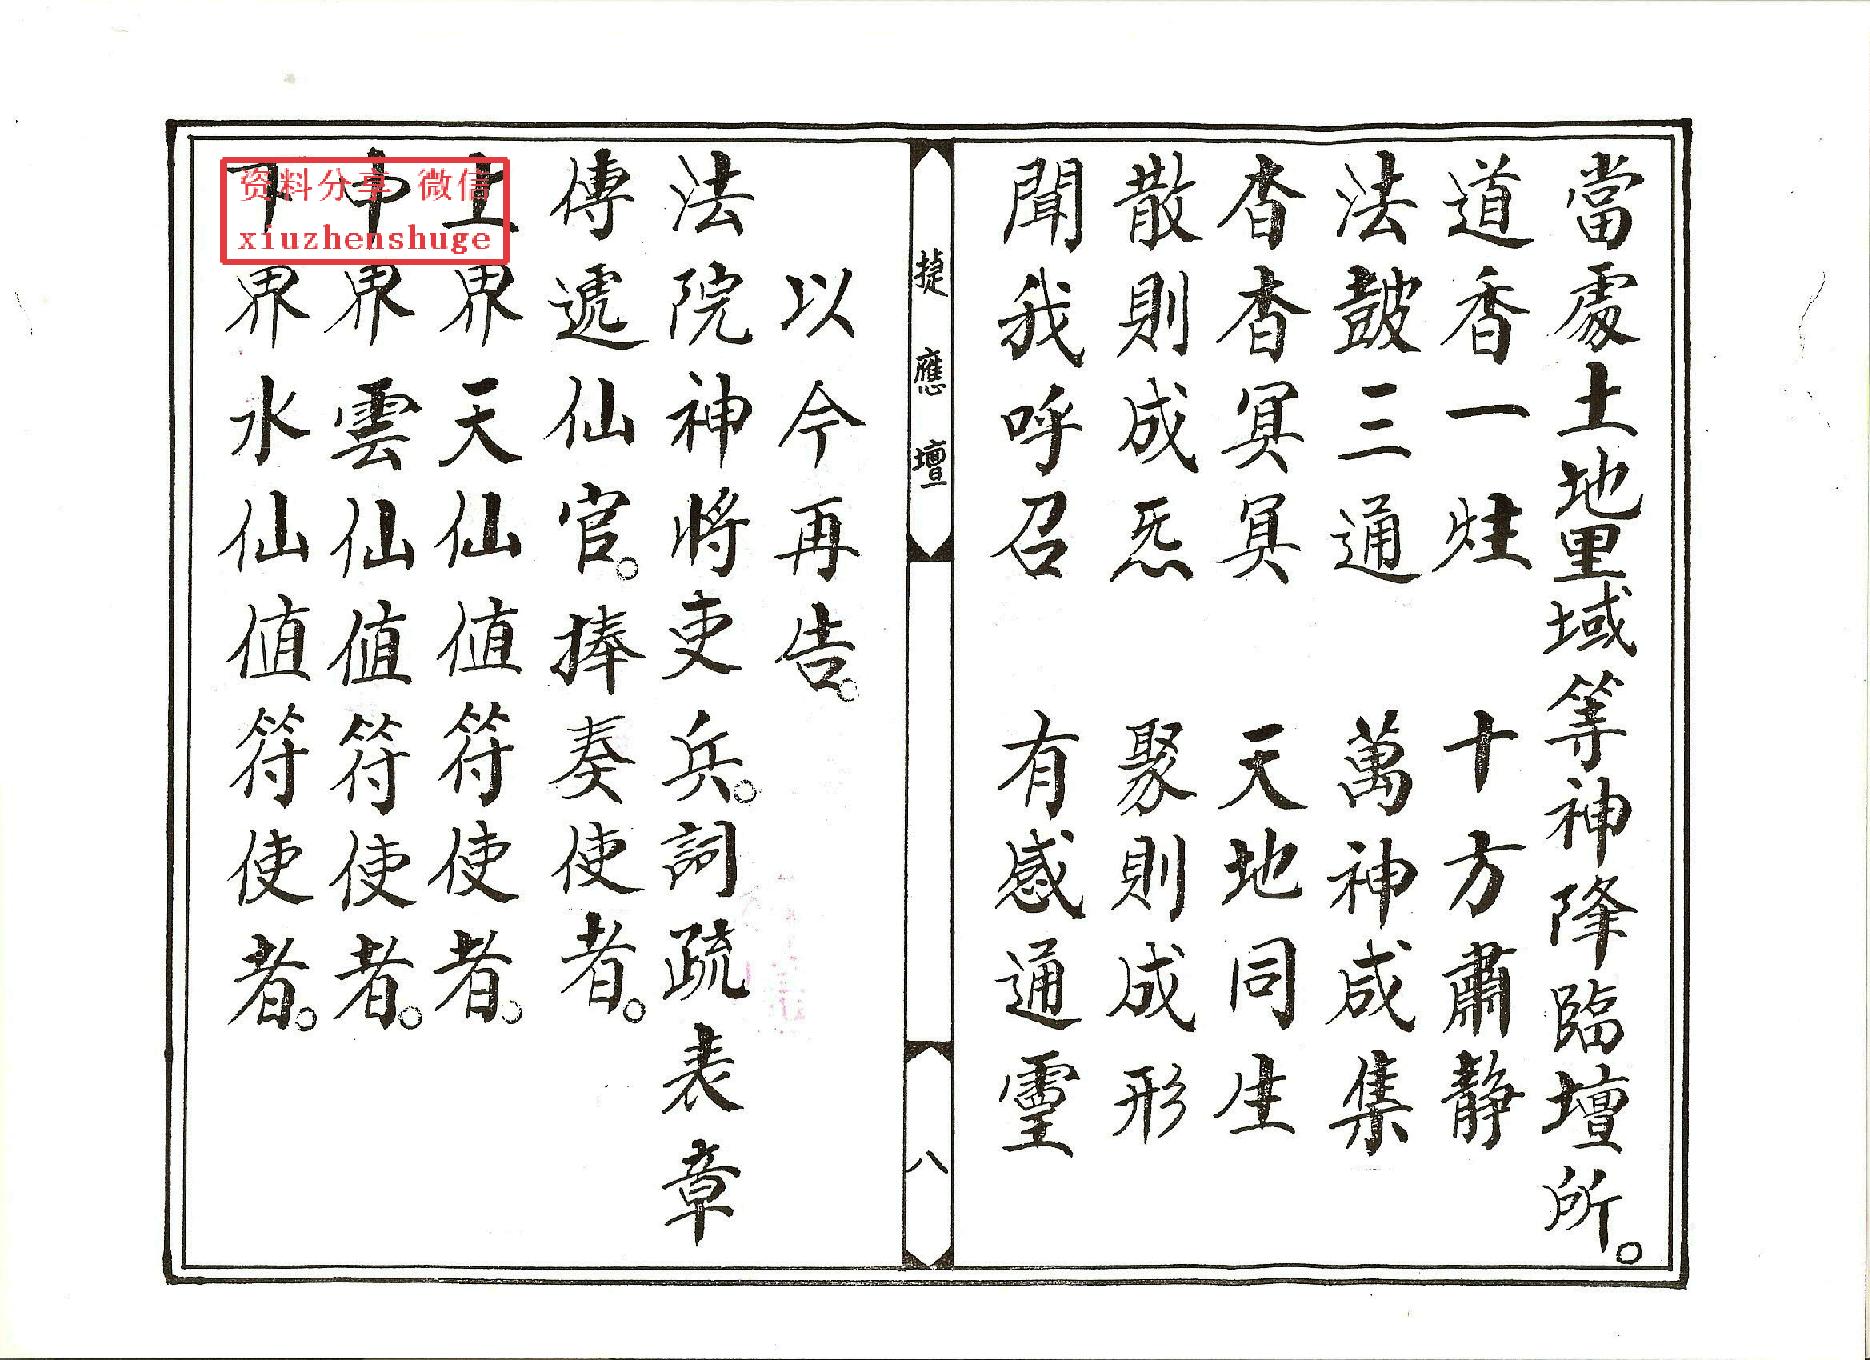 當處土地里域等神降臨壇所。
道香一炷　十方肅静
法鼓三通　萬神咸集
杳杳冥冥　天地同生
散則成炁　聚則成形
聞我呼召　有感通靈
捷應壇
八
以今再告。
法院神將吏兵。詞疏表章
傳遞仙官。捧奏使者。
上界天仙值符使者。
中界雲仙值符使者。
下界水仙值符使者。
资料分享 微信
xiuzhenshuge